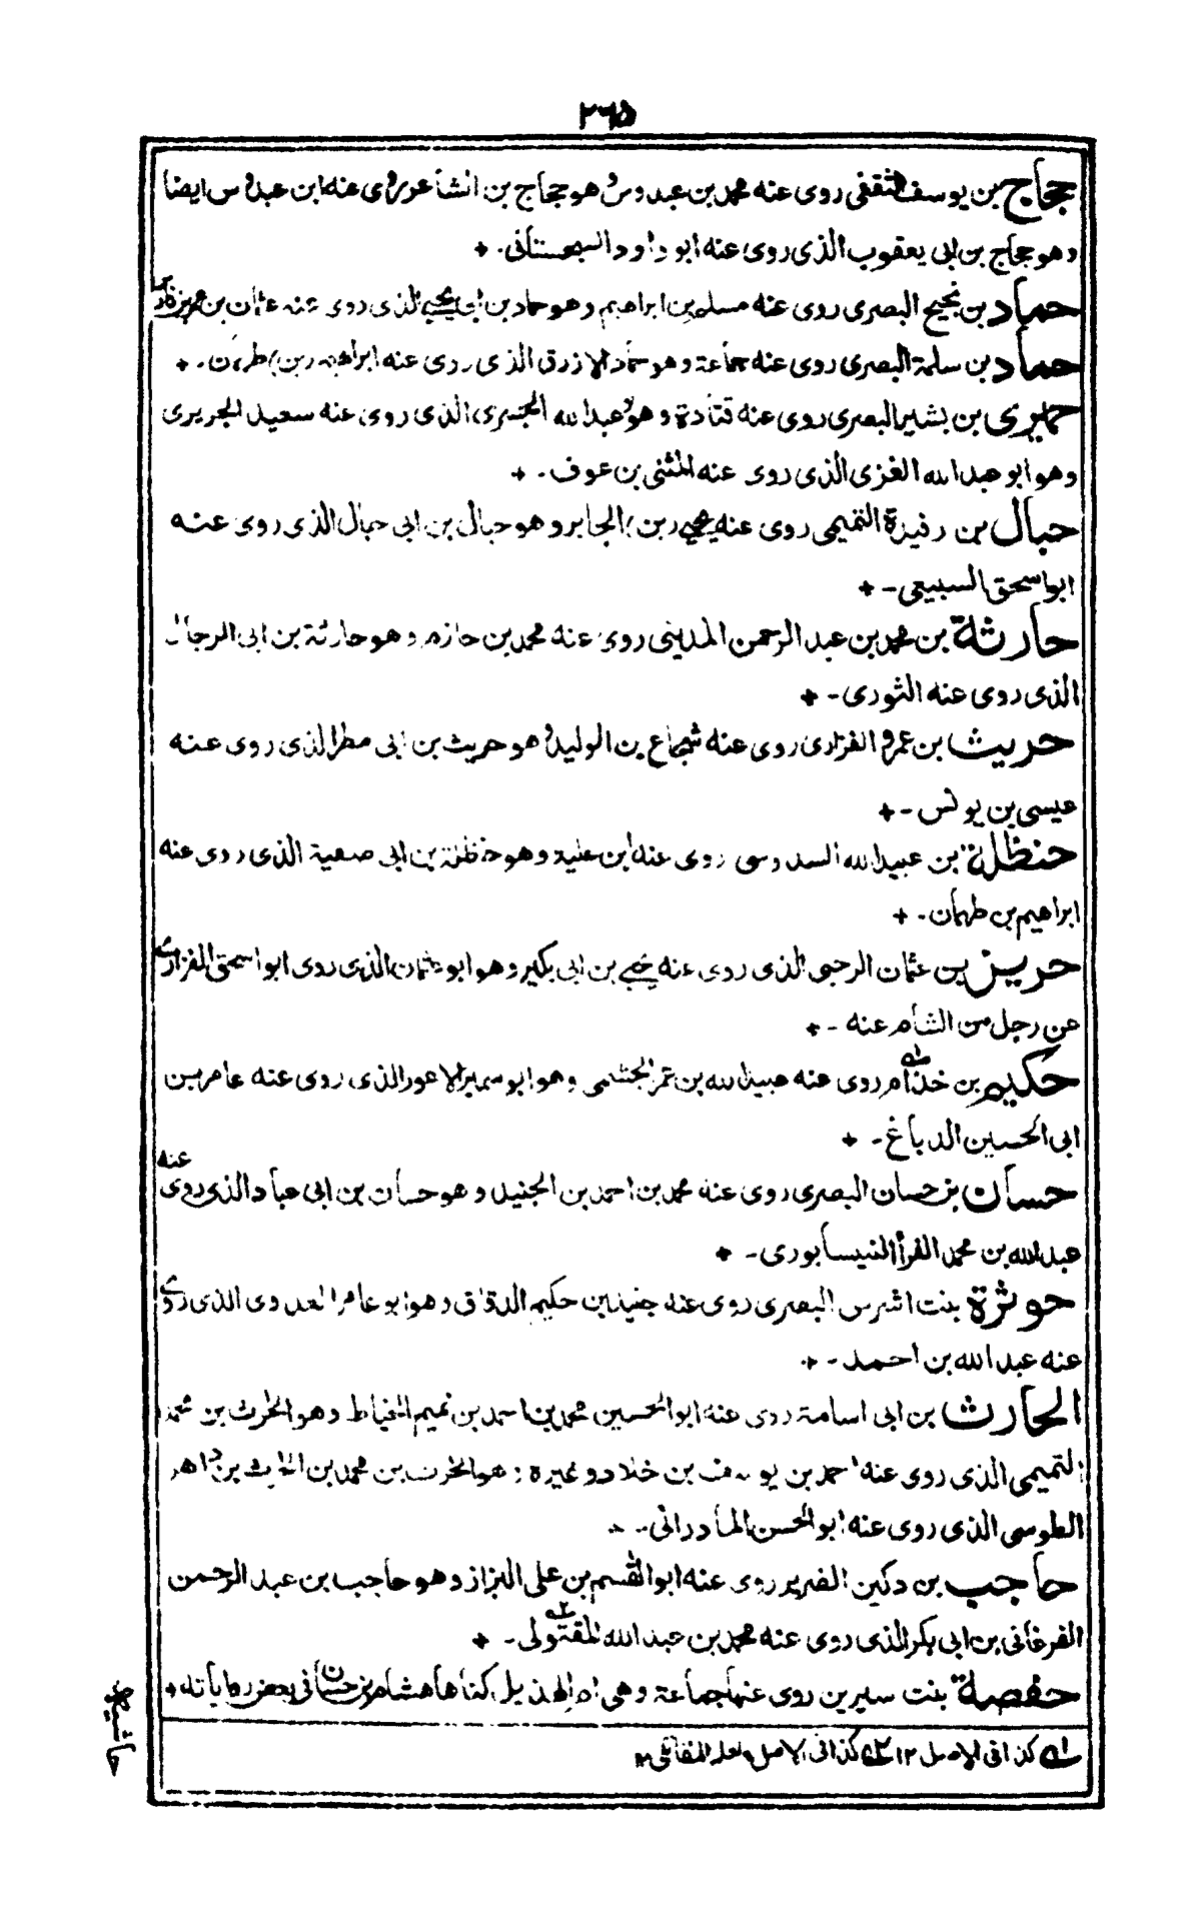 ٢٦٥
حجاج بن يوسف الثقفى روى عنه محمد بن عبدوس وهو حجاج بن الشاعر روى عنه ابن عبدوس ايضا
وهو حجاج بن ابى يعقوب الذى روى عنه ابو داود السجستانى.
حماد بن نجيح البصرى روى عنه مسلم بن ابراهيم وهو حماد بن ابى يحيى الذى روى عنه عثمان بن عمر بن فارس
حماد بن سلمة البصرى روى عنه جماعة وهو حماد الازرق الذى روى عنه ابراهيم (بن) طهمان.
حميرى بن بشير البصرى روى عنه قتادة وهو ابو عبدالله الجسرى الذى روى عنه سعيد الجريرى
وهو ابو عبدالله الغزى الذى روى عنه المثنى بن عوف.
حبال بن رفيدة التميمى روى عنه يحيى (بن) الجابر وهو حبال بن ابى حبال الذى روى عنه
ابو اسحق السبيعى۔
حارثة بن محمد بن عبد الرحمن المدينى روى عنه محمد بن حازم وهو حارثة بن ابى الرجال
الذى روى عنه الثورى۔
حريث بن عمرو الفزارى روى عنه شجاع بن الوليد وهو حريث بن ابى مطر الذى روى عنه
عيسى بن يونس۔
حنظلة بن عبيدالله السدوسى روى عنه ابن علية وهو حنظلة بن ابى صفية الذى روى عنه
ابراهيم بن طهمان.
حريز بن عثمان الرحبى الذى روى عنه يحيى بن ابى بكير وهو ابو عثمان الذى روى ابو اسحق الفزارى
عن رجل من الشام عنه۔
حكيم بن خذام روى عنه عبيدالله بن عمر الجشمى وهو ابو سمير الاعور الذى روى عنه عامر بن
ابى الحسين الدباغ۔
حسان بن حسان البصرى روى عنه محمد بن احمد بن الجنيد وهو حسان بن ابى عباد الذى روى عنه
عبدالله بن محمد الفرا النيسابورى۔
حوثرة بنت اشرس البصرى روى عنه جنيد بن حكيم الدقاق وهو ابو عامر العدوى الذى روى
عنه عبدالله بن احمد۔
الحارث بن ابى اسامة روى عنه ابو الحسين محمد بن احمد بن تميم الخياط وهو الحرث بن محمد
التميمى الذى روى عنه احمد بن يوسف بن خلاد وغيره : هو الحرث بن محمد بن الحارث بن داهر
الطوسى الذى روى عنه ابو الحسن المادرانى۔
حاجب بن دكين الضرير روى عنه ابو القسم بن على البزاز وهو حاجب بن عبد الرحمن
الفرغانى بن ابى بكر الذى روى عنه محمد بن عبد الله المقتولى۔
حفصة بنت سيرين روى عنها جماعة وهى ام الهذيل كناها هشام بن حسان فى بعض رواياته
كذا فى الاصل ١٢ كذا فى الاصل ولعله المفاتلى ١٢
حاشيه